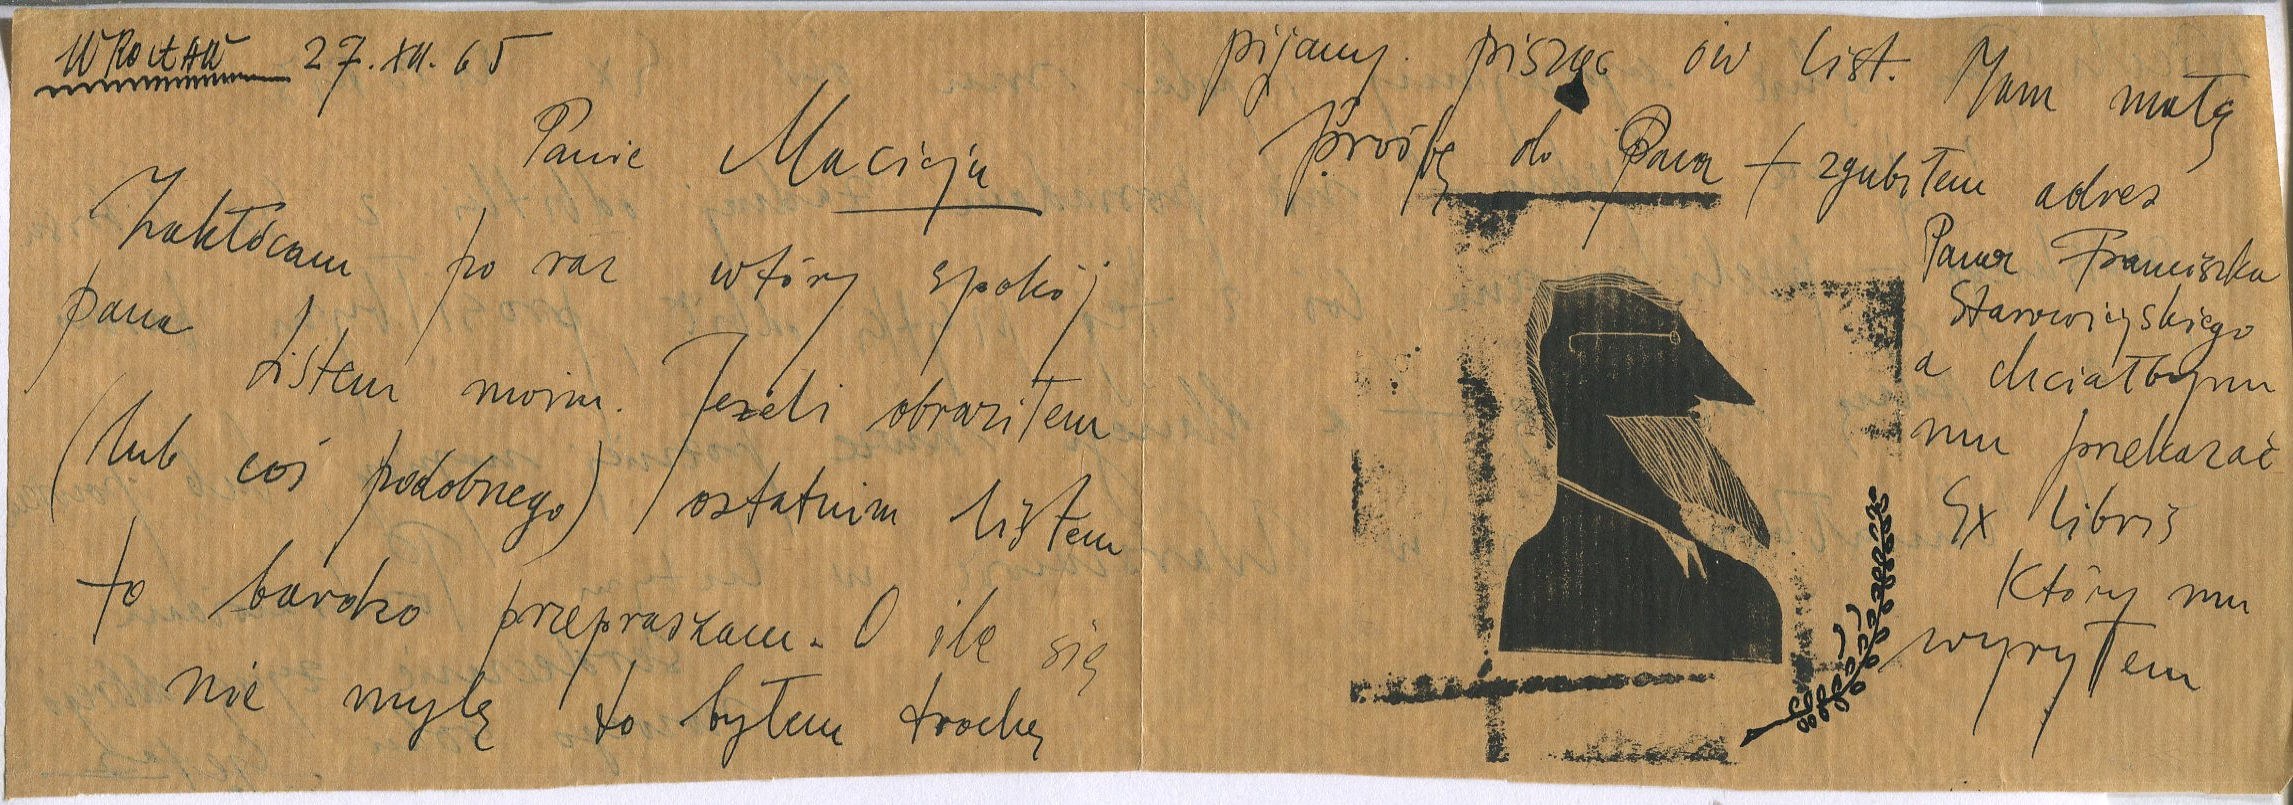 WROCŁAW 27.XII.65
Panie Macieju
Zakłócam po raz wtóry spokój
pana listem moim. Jeżeli obraziłem
(lub coś podobnego) ostatnim listem
to bardzo przepraszam. O ile się
nie mylę to byłem trochę
pijany pisząc ów list. Mam małą
prośbę do Pana – zgubiłem adres
Pana Franciszka
Starowieyskiego
a chciałbym
mu przekazać
Ex libris
który mu
wyryłem